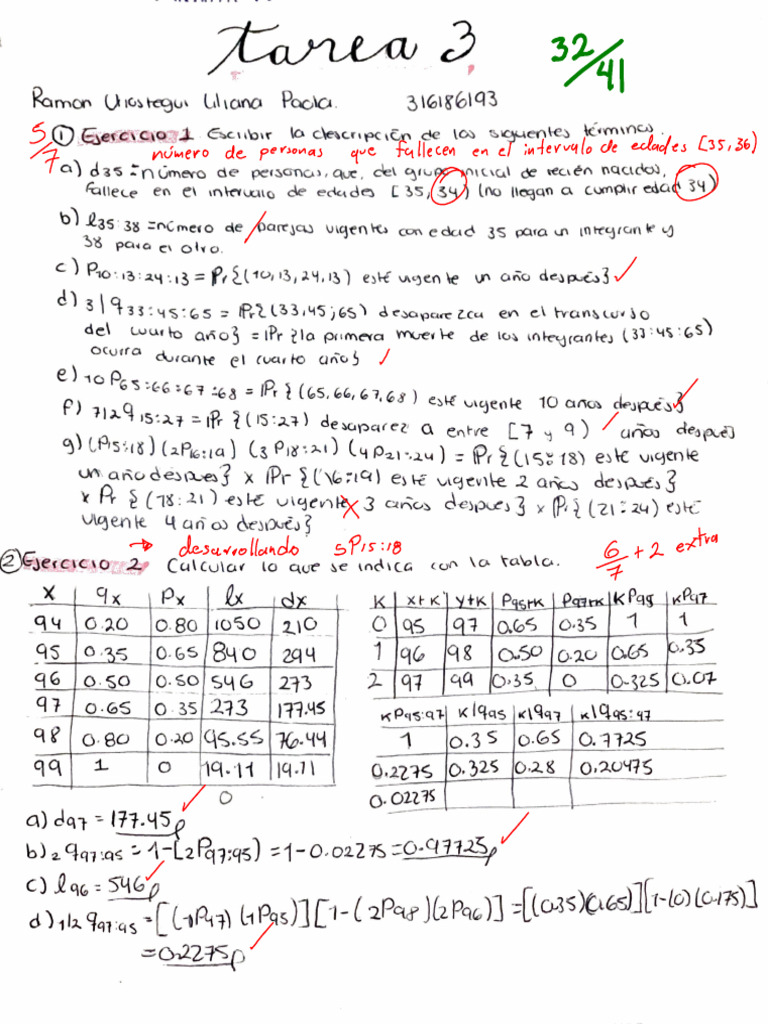 tarea 3
32/41
Ramon Uriostegui Liliana Paola. 316186193
5/7
① Ejercicio 1. Escribir la descripción de los siguientes términos.
número de personas que fallecen en el intervalo de edades [35,36)
a) d35 = número de personas, que, del grupo inicial de recién nacidos,
fallece en el intervalo de edades [35,34) (no llegan a cumplir edad 34)
b) l35:38 = número de parejas vigentes con edad 35 para un integrante y
38 para el otro.
c) P10:13:24:13 = Pr{(10,13,24,13) esté vigente un año después}
d) 3|q33:45:65 = Pr{(33,45,65) desaparezca en el transcurso
del cuarto año} = Pr{la primera muerte de los integrantes (33:45:65)
ocurra durante el cuarto año}
e) 10P65:66:67:68 = Pr{(65,66,67,68) esté vigente 10 años después}
f) 7|2q15:27 = Pr{(15:27) desaparez a entre [7 y 9) años después
g) (P15:18)(2P16:19)(3P18:21)(4P21:24) = Pr{(15:18) esté vigente
un año después} x Pr{(16:19) esté vigente 2 años después}
x Pr{(18:21) esté vigente 3 años después} x Pr{(21:24) esté
vigente 4 años después}
→ desarrollando 5P15:18
6/7 + 2 extra
② Ejercicio 2. Calcular lo que se indica con la tabla.
x qx Px lx dx
94 0.20 0.80 1050 210
95 0.35 0.65 840 294
96 0.50 0.50 546 273
97 0.65 0.35 273 177.45
98 0.80 0.20 95.55 76.44
99 1 0 19.11 19.11
0
K x+k y+k P95+k P97+k KP95 KP97
0 95 97 0.65 0.35 1 1
1 96 98 0.50 0.20 0.65 0.35
2 97 99 0.35 0 0.325 0.07
KP95:97 K|q95 K|q97 K|q95:97
1 0.35 0.65 0.7725
0.2275 0.325 0.28 0.20475
0.02275
a) d97 = 177.45
b) 2q97:95 = 1-(2P97:95) = 1-0.02275 = 0.97725
c) l96 = 546
d) 1|2q97:95 = [(1P97)(1P95)][1-(2P98)(2P96)] = [(0.35)(0.65)][1-(0)(0.175)]
= 0.2275